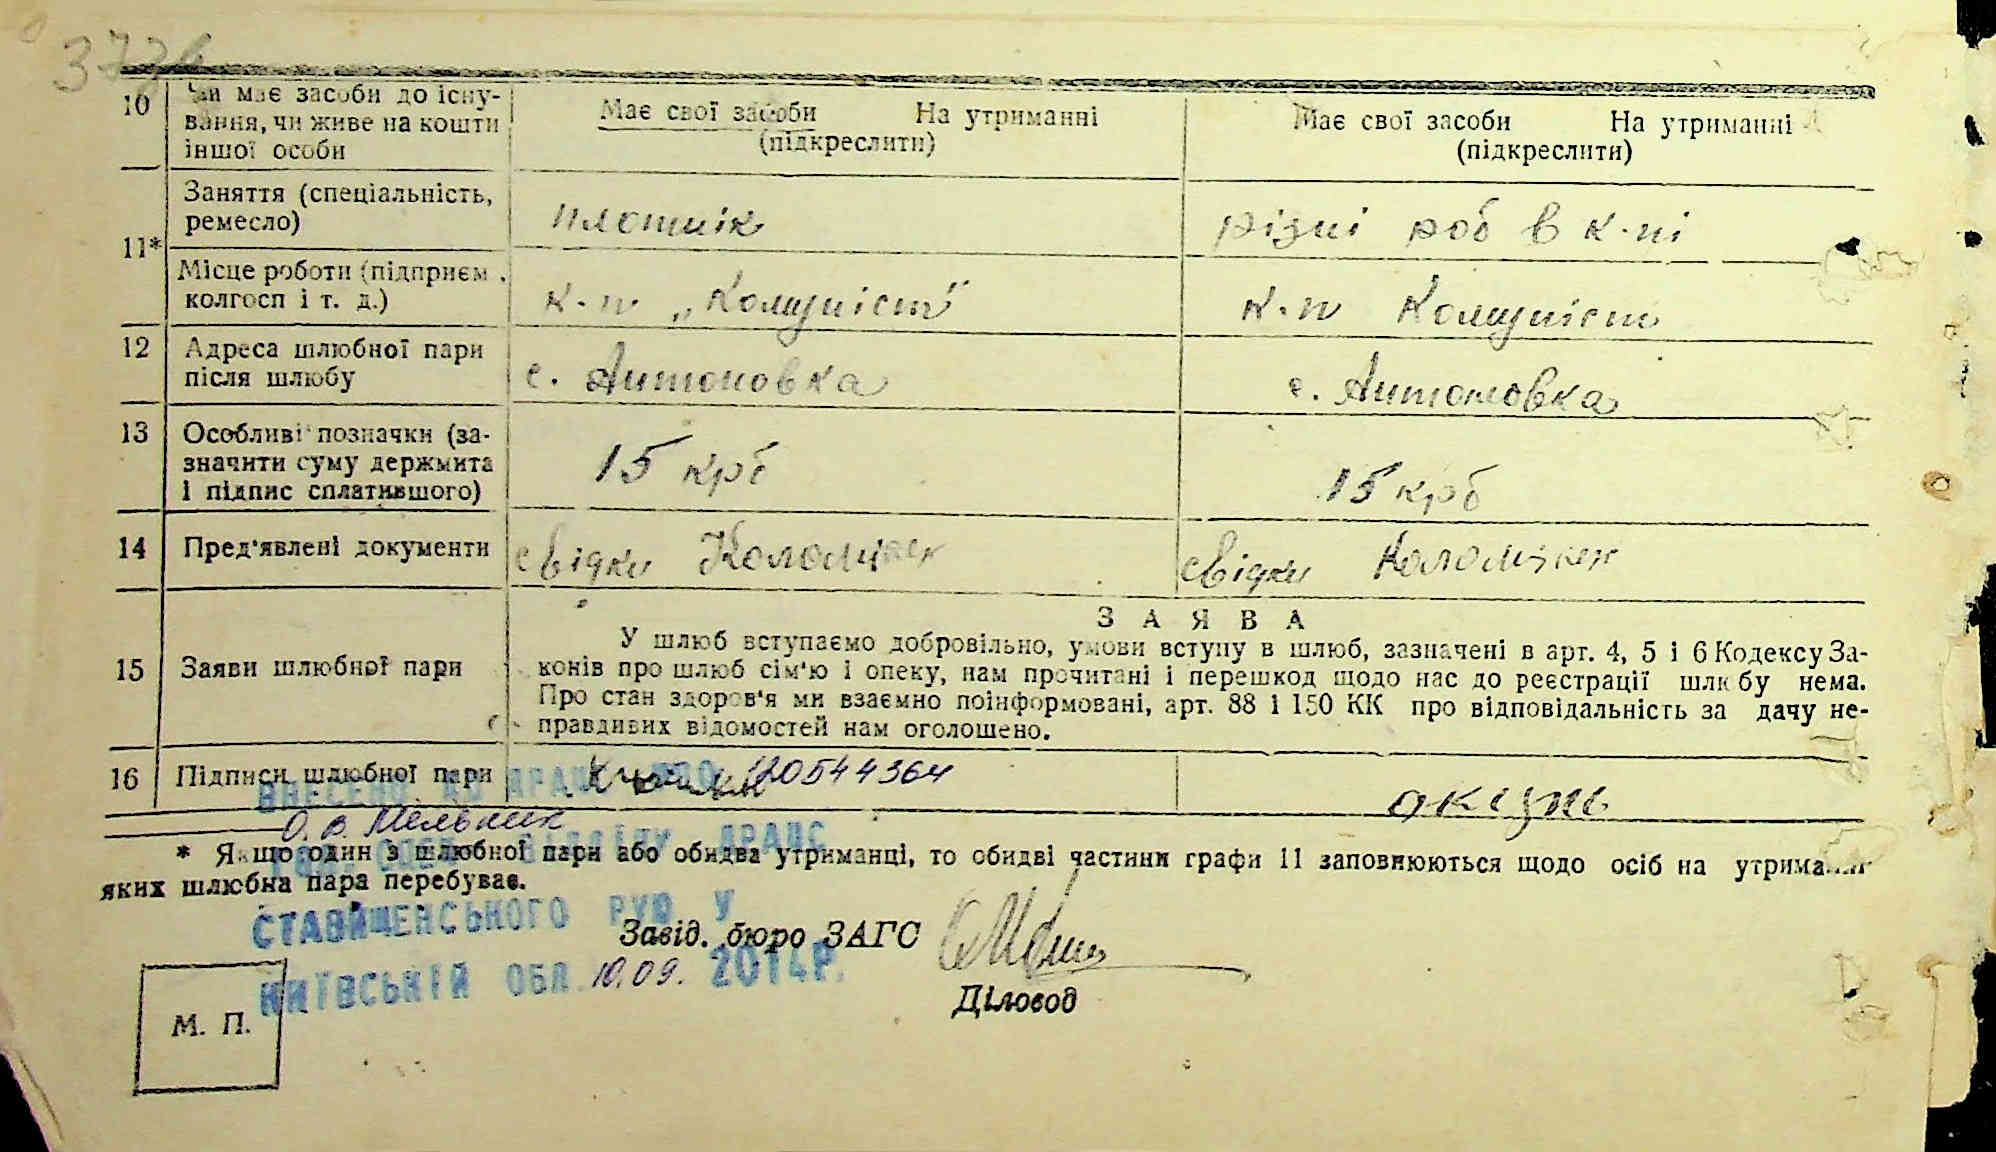 10 Чи має засоби до існу- Має свої засоби На утриманні Має свої засоби На утриманні
вання, чи живе на кошти (підкреслити) (підкреслити)
іншої особи
11* Заняття (спеціальність, плотнік різні роб в к-пі
ремесло)
Місце роботи (підприєм. к-п „Комуніст" к-п Комуніст
колгосп і т. д.)
12 Адреса шлюбної пари с. Антоновка с. Антоновка
після шлюбу
13 Особливі позначки (за- 15 крб 15 крб
значити суму держмита
і підпис сплатившого)
14 Пред'явлені документи свідки свідки
З А Я В А
15 Заяви шлюбної пари У шлюб вступаємо добровільно, умови вступу в шлюб, зазначені в арт. 4, 5 і 6 Кодексу За-
конів про шлюб сім'ю і опеку, нам прочитані і перешкод щодо нас до реєстрації шлюбу нема.
Про стан здоров'я ми взаємно поінформовані, арт. 88 і 150 КК про відповідальність за дачу не-
правдивих відомостей нам оголошено.
16 Підписи шлюбної пари
ВНЕСЕНО ДО ДРАЦС
О. В. Мельник
ВІДДІЛУ ДРАЦС
* Якщо один з шлюбної пари або обидва утриманці, то обидві частини графи 11 заповнюються щодо осіб на
яких шлюбна пара перебуває.
СТАВИЩЕНСЬКОГО РУЮ У
Завід. бюро ЗАГС
КИЇВСЬКІЙ ОБЛ. 10.09. 2014Р.
Діловод
М. П.